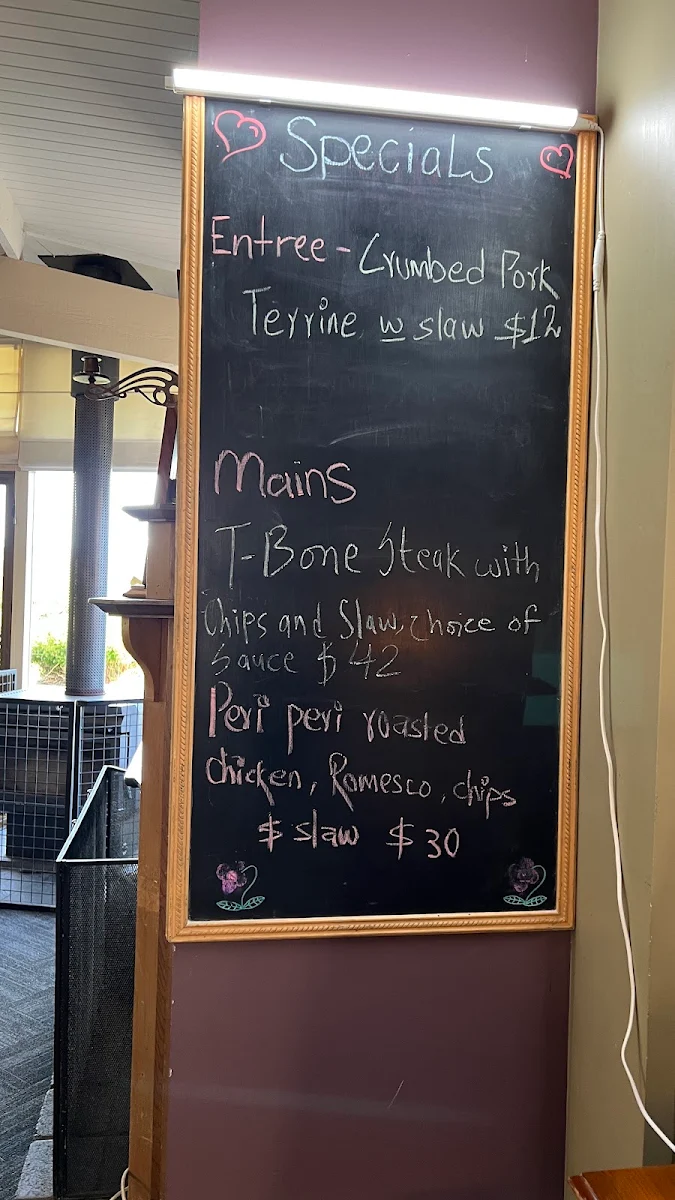 Specials
Entree - Crumbed Pork
Terrine w slaw $12
Mains
T-Bone Steak with
Chips and Slaw, choice of
Sauce $42
Peri peri roasted
chicken, Romesco, chips
$ slaw $30